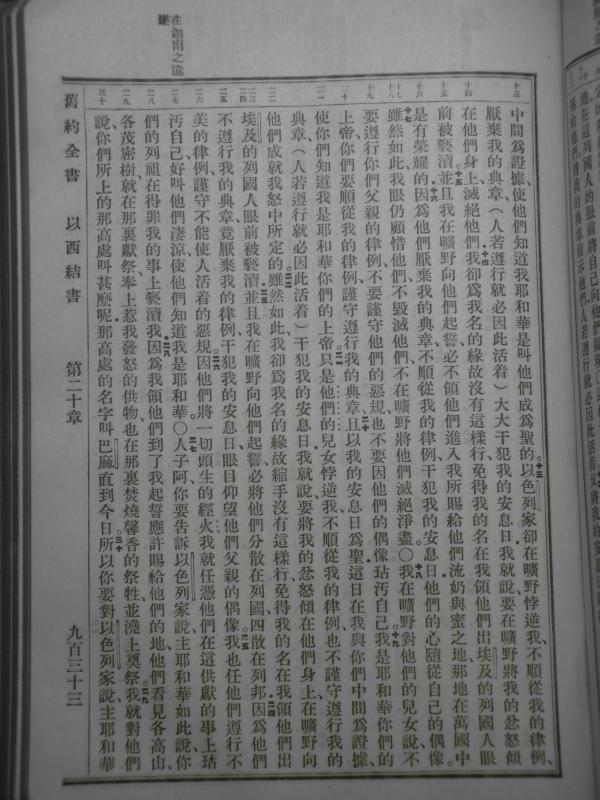 在迦南之遠邇
中間爲證據、使他們知道我耶和華是叫他們成爲聖的以色列家卻在曠野悖逆我、不順從我的律例、
厭棄我的典章（人若遵行就必因此活着）大大干犯我的安息日我就說要在曠野將我的忿怒傾
在他們身上滅絕他們我卻爲我名的緣故沒有這樣行免得我的名在我領他們出埃及的列國人眼
前被褻瀆並且我在曠野向他們起誓必不領他們進入我所賜給他們流奶與蜜之地那地在萬國中
是有榮耀的因爲他們厭棄我的典章不順從我的律例干犯我的安息日他們的心隨從自己的偶像
雖然如此我眼仍顧惜他們不毀滅他們不在曠野將他們滅絕淨盡〇我在曠野對他們的兒女說不
要遵行你們父親的律例不要謹守他們的惡規也不要因他們的偶像玷汚自己我是耶和華你們的
上帝你們要順從我的律例謹守遵行我的典章且以我的安息日爲聖這日在我與你們中間爲證據、
使你們知道我是耶和華你們的上帝只是他們的兒女悖逆我不順從我的律例也不謹守遵行我的
典章（人若遵行就必因此活着）干犯我的安息日我就說要將我的忿怒傾在他們身上在曠野向
他們成就我怒中所定的雖然如此我卻爲我名的緣故縮手沒有這樣行免得我的名在我領他們出
埃及的列國人眼前被褻瀆並且我在曠野向他們起誓必將他們分散在列國四散在列邦因爲他們
不遵行我的典章竟厭棄我的律例干犯我的安息日眼目仰望他們父親的偶像我也任他們遵行不
美的律例謹守不能使人活着的惡規因他們將一切頭生的經火我就任憑他們在這供獻的事上玷
汚自己好叫他們淒涼使他們知道我是耶和華〇人子阿你要告訴以色列家說主耶和華如此說你
們的列祖在得罪我的事上褻瀆我因爲我領他們到了我起誓應許賜給他們的地他們看見各高山
各茂密樹就在那裏獻祭奉上惹我發怒的供物也在那裏焚燒馨香的祭牲並澆上奠祭我就對他們
說你們所上的那高處叫甚麼呢那高處的名字叫巴麻直到今日所以你要對以色列家說主耶和華
舊約全書　以西結書　第二十章　九百三十三